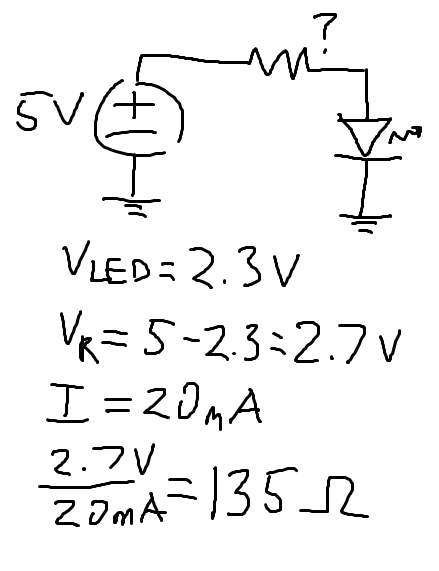 ?
5V
+
−
V_LED = 2.3 V
V_R = 5 - 2.3 = 2.7 V
I = 20mA
2.7V
20mA = 135 Ω